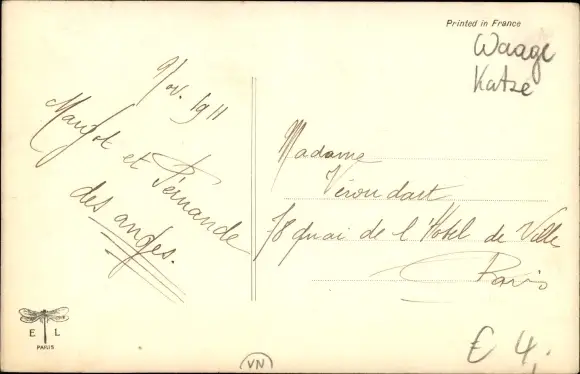 Printed in France
Waage
Katze
Nov. 1911
Margot et Fernande
des anges.
Madame
Véroudart
78 quai de l'Hotel de Ville
Paris
E L
PARIS
VN
€ 4,-